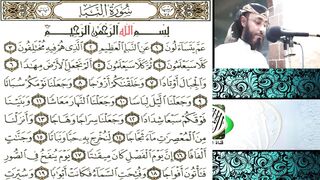 سُورَةُ النَّبَإِ
بِسْمِ اللَّهِ الرَّحْمَٰنِ الرَّحِيمِ
عَمَّ يَتَسَاءَلُونَ ١ عَنِ النَّبَإِ الْعَظِيمِ ٢ الَّذِي هُمْ فِيهِ مُخْتَلِفُونَ ٣
كَلَّا سَيَعْلَمُونَ ٤ ثُمَّ كَلَّا سَيَعْلَمُونَ ٥ أَلَمْ نَجْعَلِ الْأَرْضَ مِهَادًا ٦
وَالْجِبَالَ أَوْتَادًا ٧ وَخَلَقْنَاكُمْ أَزْوَاجًا ٨ وَجَعَلْنَا نَوْمَكُمْ سُبَاتًا
٩ وَجَعَلْنَا اللَّيْلَ لِبَاسًا ١٠ وَجَعَلْنَا النَّهَارَ مَعَاشًا ١١ وَبَنَيْنَا
فَوْقَكُمْ سَبْعًا شِدَادًا ١٢ وَجَعَلْنَا سِرَاجًا وَهَّاجًا ١٣ وَأَنْزَلْنَا
مِنَ الْمُعْصِرَاتِ مَاءً ثَجَّاجًا ١٤ لِنُخْرِجَ بِهِ حَبًّا وَنَبَاتًا ١٥ وَجَنَّاتٍ
أَلْفَافًا ١٦ إِنَّ يَوْمَ الْفَصْلِ كَانَ مِيقَاتًا ١٧ يَوْمَ يُنْفَخُ فِي الصُّورِ
فَتَأْتُونَ أَفْوَاجًا ١٨ وَفُتِحَتِ السَّمَاءُ فَكَانَتْ أَبْوَابًا